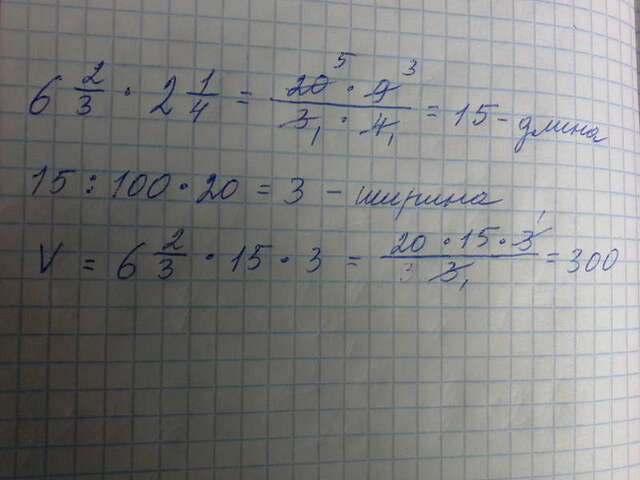 6 2/3 · 2 1/4 = 20⁵ · 9³ / 3₁ · 4₁ = 15 - длина
15 : 100 · 20 = 3 - ширина
V = 6 2/3 · 15 · 3 = 20 · 15 · 3¹ / 3 3₁ = 300